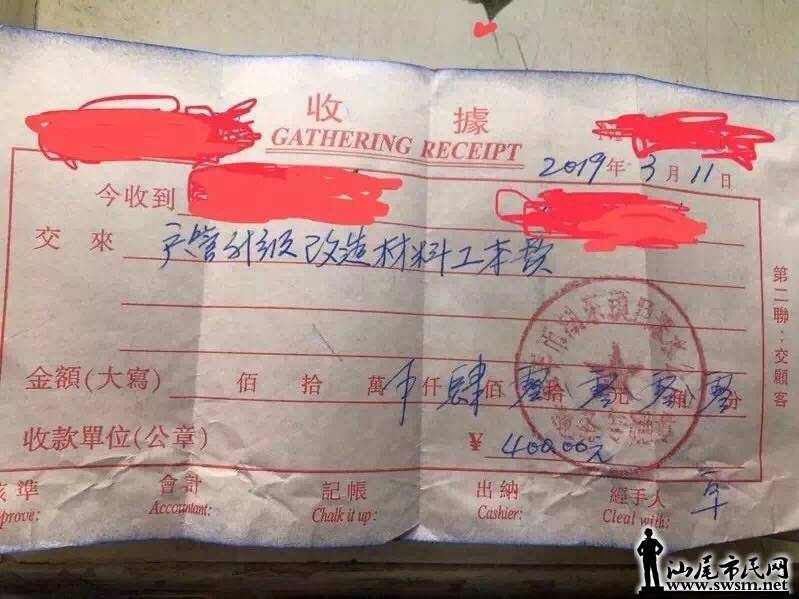 收 據
GATHERING RECEIPT
2019年 3月 11日
今收到
交 來 户管升级改造材料工本款
金額(大寫) 佰 拾 萬 仟肆佰零拾零元零角零分
收款單位(公章) ¥ 400.00元
核準 會計 記帳 出納 經手人
prove: Accountant: Chalk it up: Cashier: Cleal with:
第二聯:交顧客
汕尾市民网
www.swsm.net